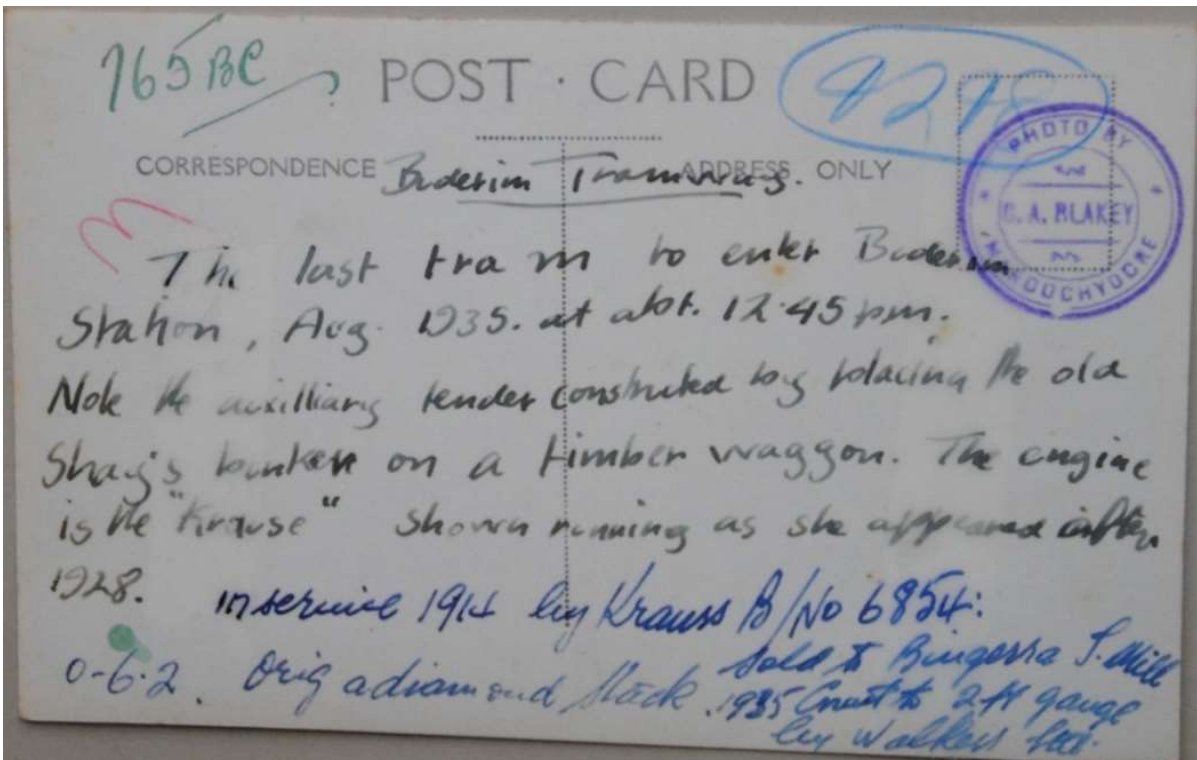 765 BC
POST · CARD
4278
CORRESPONDENCE
ADDRESS ONLY
PHOTO BY
A. BLAKEY
Buderim Tramway.
The last tram to enter Buderim
Station, Aug. 1935. at abt. 12.45 pm.
Note the auxilliary tender constructed by placing the old
Shay's bunker on a timber waggon. The engine
is the "Krause" shown running as she appeared after
1928.
in service 1914 by Krauss B/No 6854:
0-6-2. Orig a diamond stack.
Sold to Bingera S. Mill
1935 Const to 2 ft gauge
by Walkers